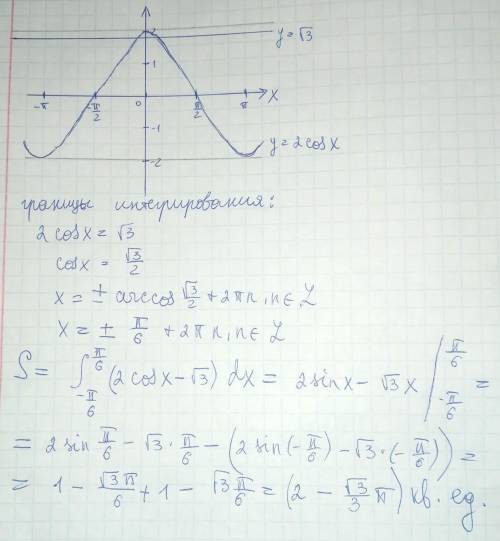 2
y = √3
1
-π
-π/2
0
π/2
π
x
-1
y = 2cosx
-2
границы интегрирования:
2 cosx = √3
cosx = √3/2
x = ± arccos √3/2 + 2πn, n∈Z
x = ± π/6 + 2πn, n∈Z
S = ∫_{-π/6}^{π/6} (2cosx - √3) dx = 2sinx - √3 x |_{-π/6}^{π/6} =
= 2 sin π/6 - √3 · π/6 - (2 sin(-π/6) - √3 · (-π/6)) =
= 1 - √3π/6 + 1 - √3π/6 = (2 - √3/3 π) кв. ед.